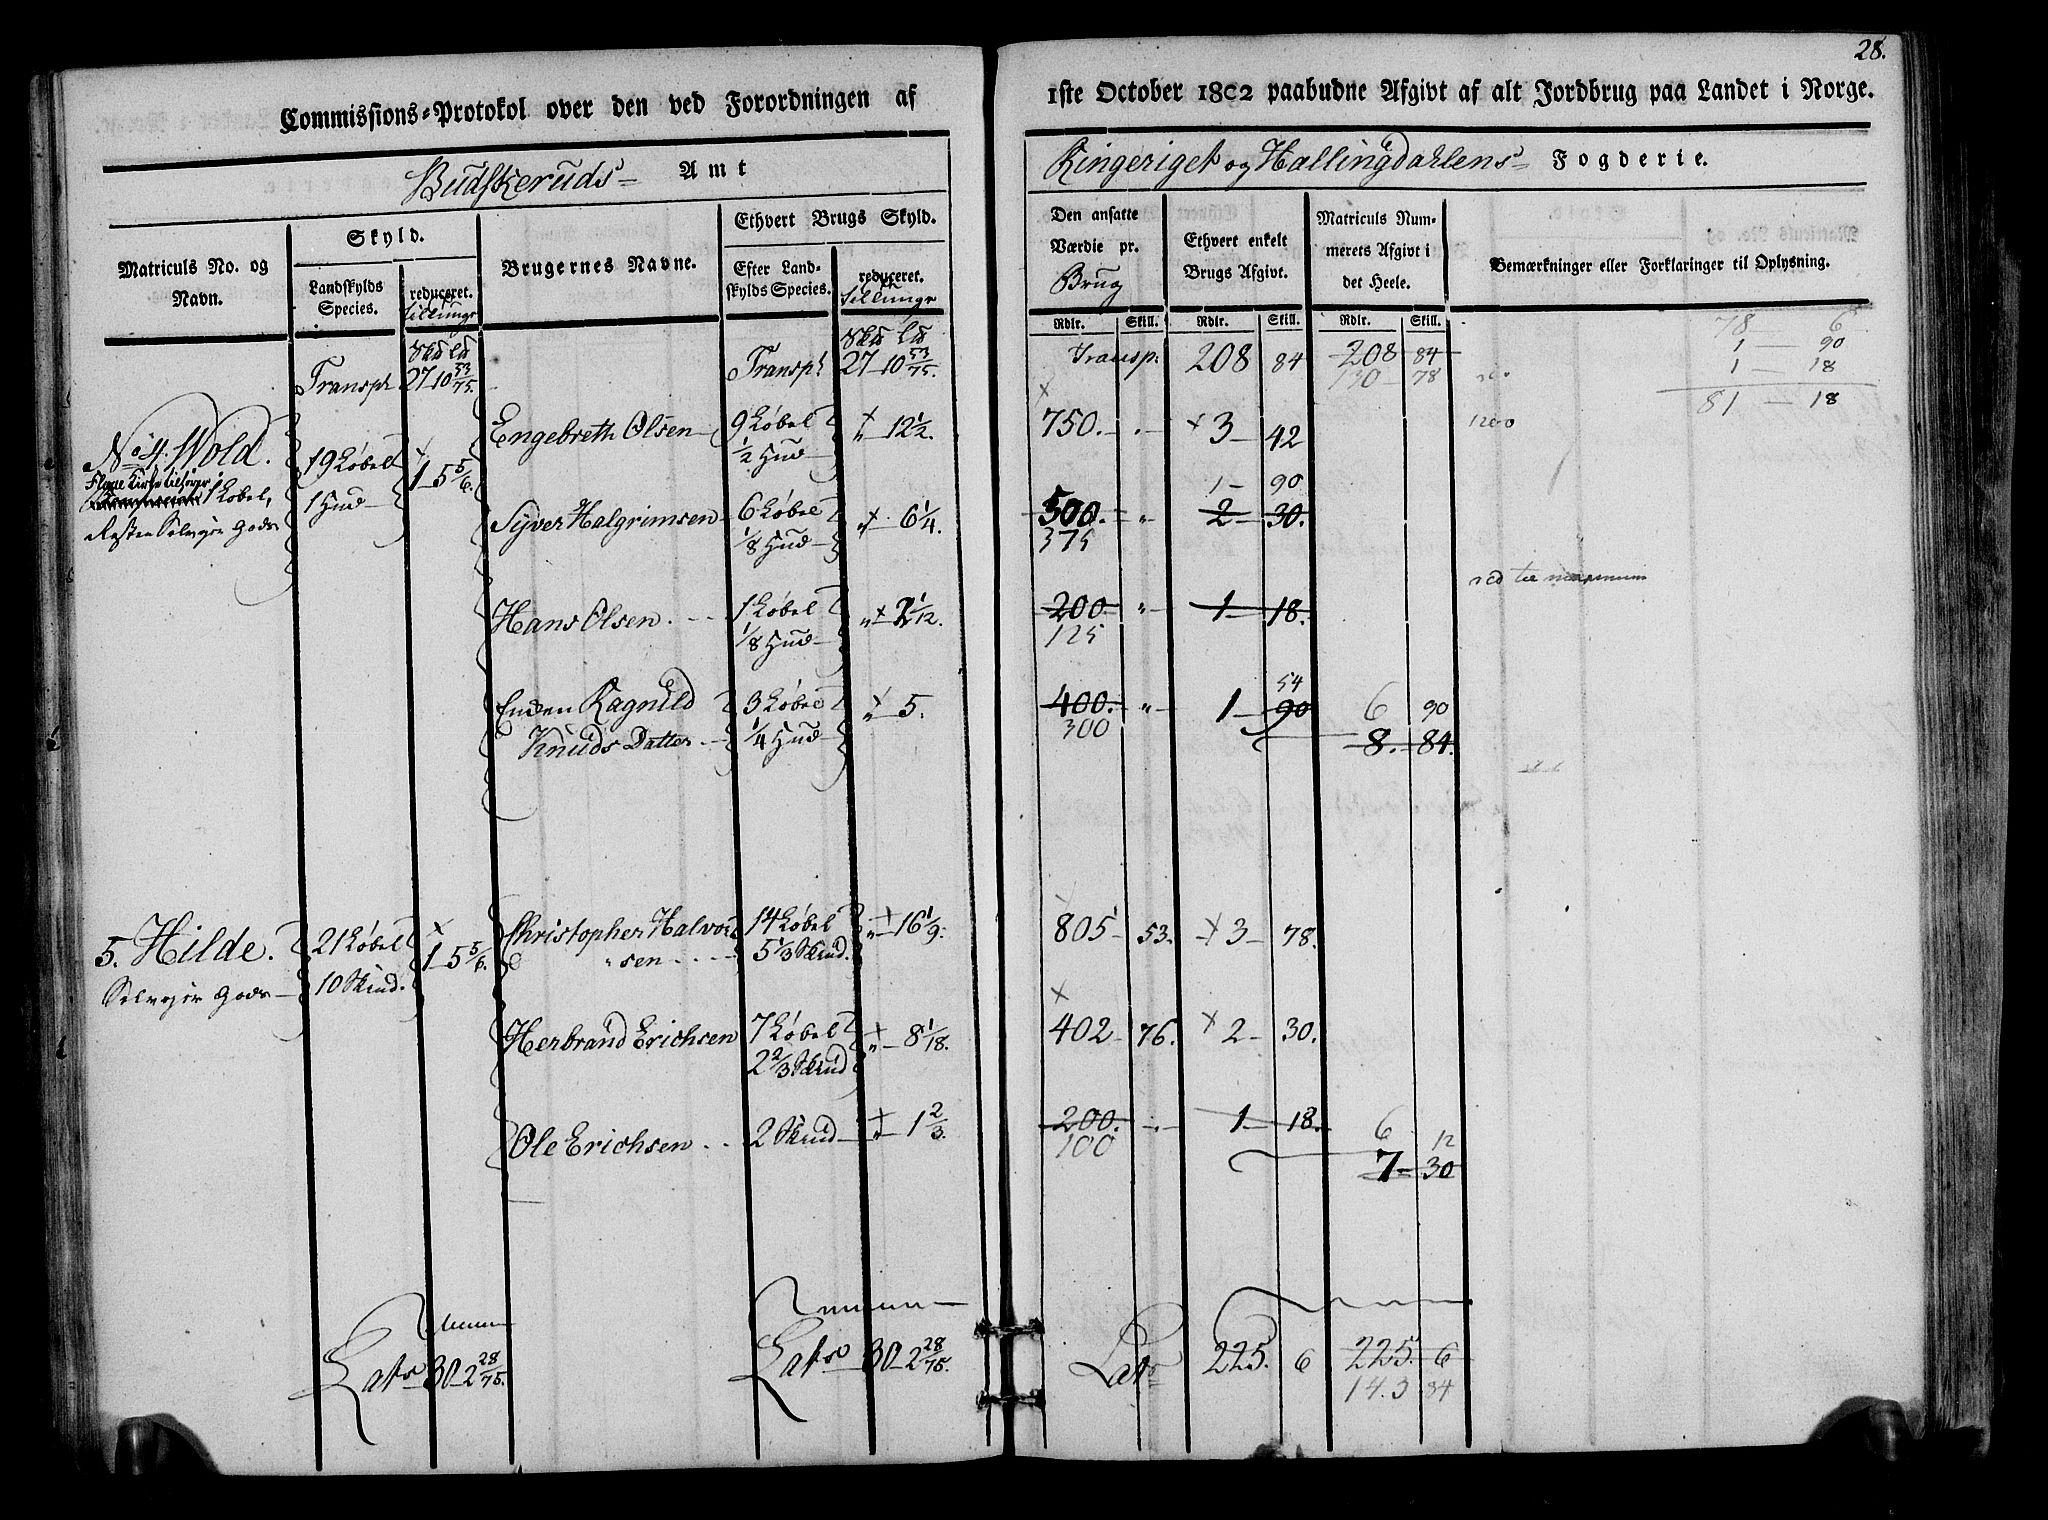 28.
Commissions-Protokol over den ved Forordningen af 1ste October 1802 paabudne Afgivt af alt Jordbrug paa Landet i Norge.
Budskeruds Amt
Ringeriget og Hallingdahlens Fogderie.
Matriculs No. og Navn.
Skyld.
Landskylds Species.
reduceret.
Brugernes Navne.
Ethvert Brugs Skyld.
Efter Landskylds Species.
reduceret.
Den ansatte Værdie pr. Brug
Ethvert enkelt Brugs Afgivt.
Matriculs Nummerets Afgivt i det Heele.
Bemærkninger eller Forklaringer til Oplysning.
Rdlr. Skill. Rdlr. Skill. Rdlr. Skill.
Transpt 27 10 53/75. Transpt 27 10 53/75. Transp. 208 84 208 84
130 78
78 6
1 90
1 18
81 18
No 4. Wold. 19 Løbel 1 Hud 1 5 5/6.
1 Løbel,
Engebreth Olsen 9 Løbel 1/2 Hud 12 1/2. 750. 3 42
1200
1 90
Syver Halgrimsen 6 Løbel 1/8 Hud 6 1/4. 500. 2 30.
375
Hans Olsen 1 Løbel 1/8 Hud 2 1/12. 200. 1 18.
125
red til maximum
Enken Ragnild Knuds Datter 3 Løbel 1/4 Hud 5. 400. 1 90
54
300
6 90
8. 84.
5. Hilde. 21 Løbel 10 Skind. 1 5 5/6.
Selveier Gods
Christopher Halvorsen 14 Løbel 5 1/3 Skind. 16 1/9. 805 53. 3 78.
Herbrand Erichsen 7 Løbel 2 2/3 Skind 8 1/18. 402 76. 2 30.
Ole Erichsen 2 Skind 1 2/3. 200. 1 18.
100
6 12
7 30
Lats 30 2 28/75. Lats 30 2 28/75. Lats 225. 6 225. 6
143 84